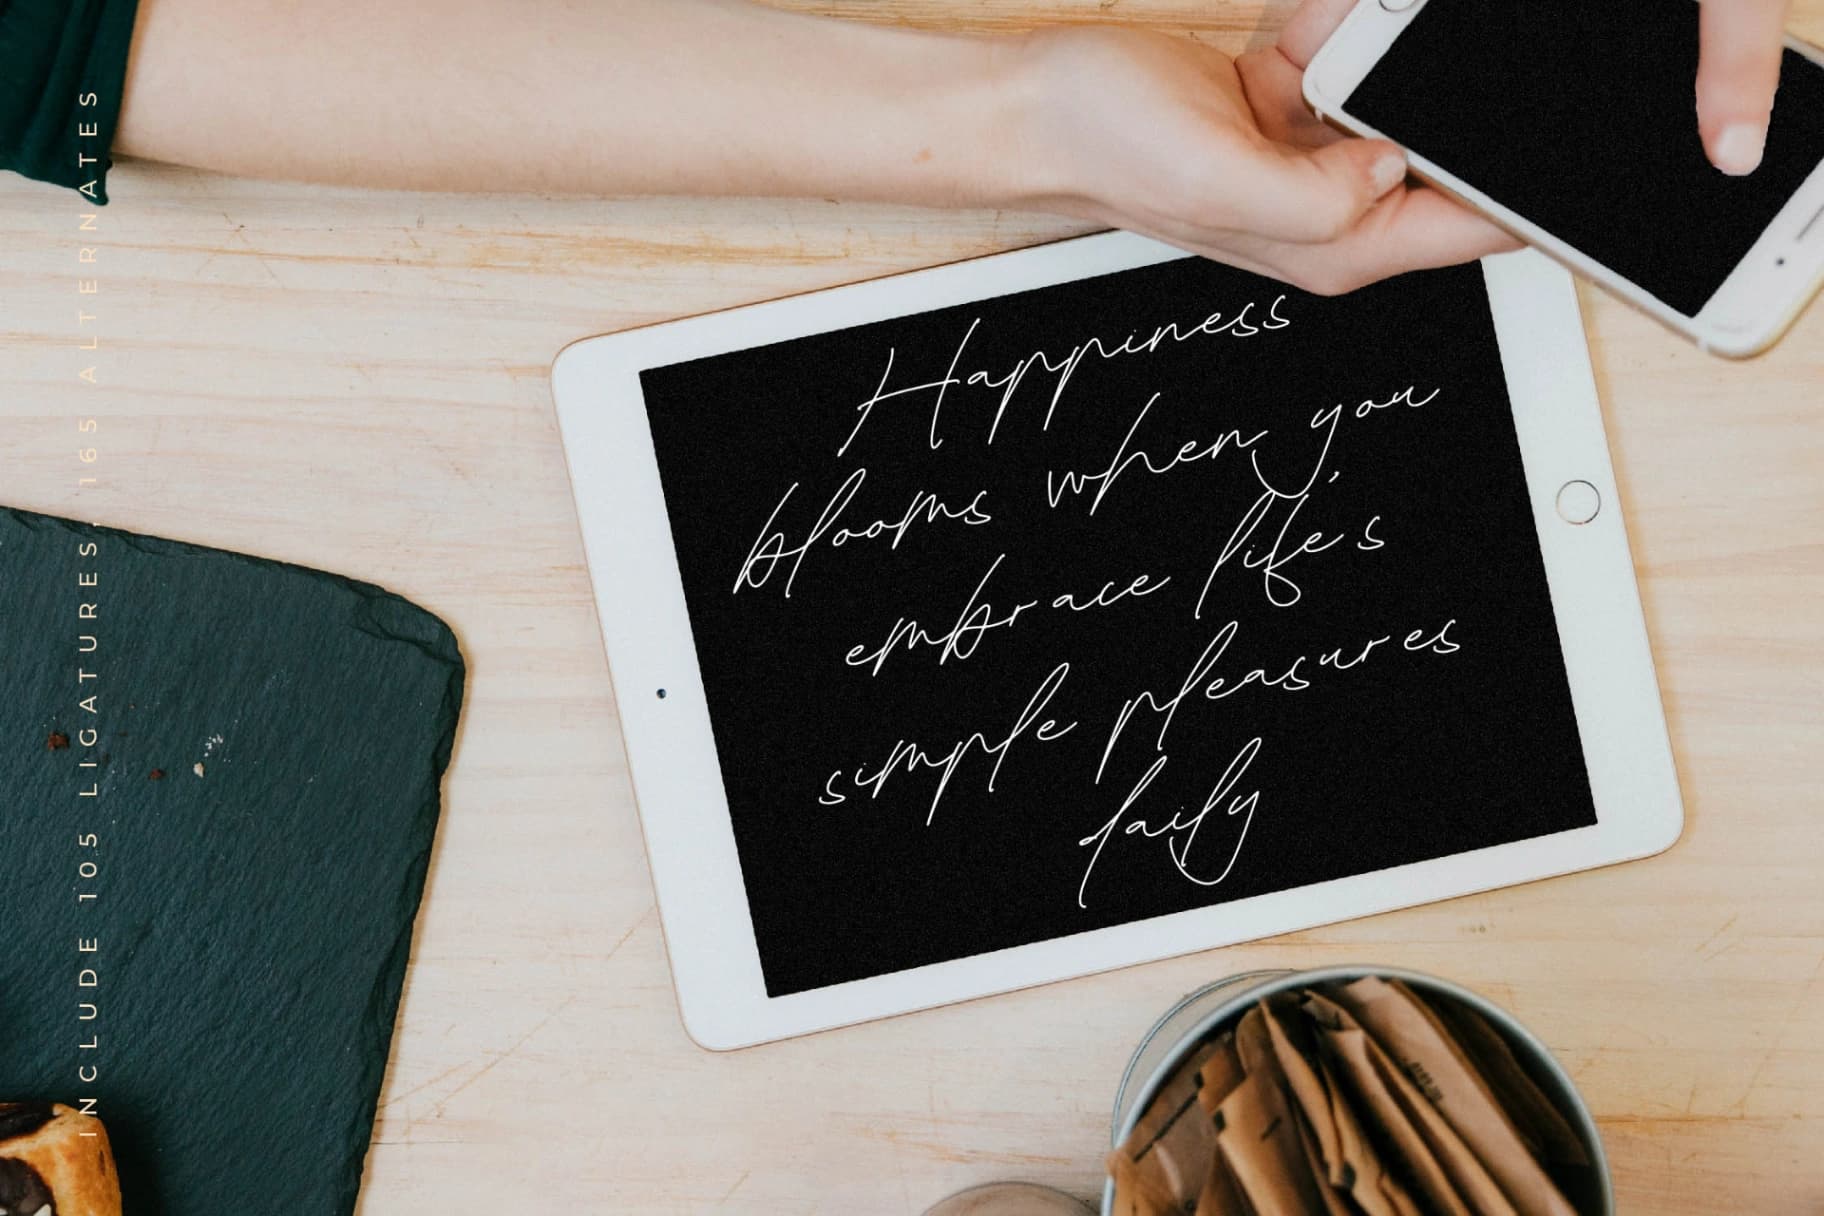 INCLUDE 105 LIGATURES, 165 ALTERNATES
Happiness
blooms when you
embrace life's
simple pleasures
daily